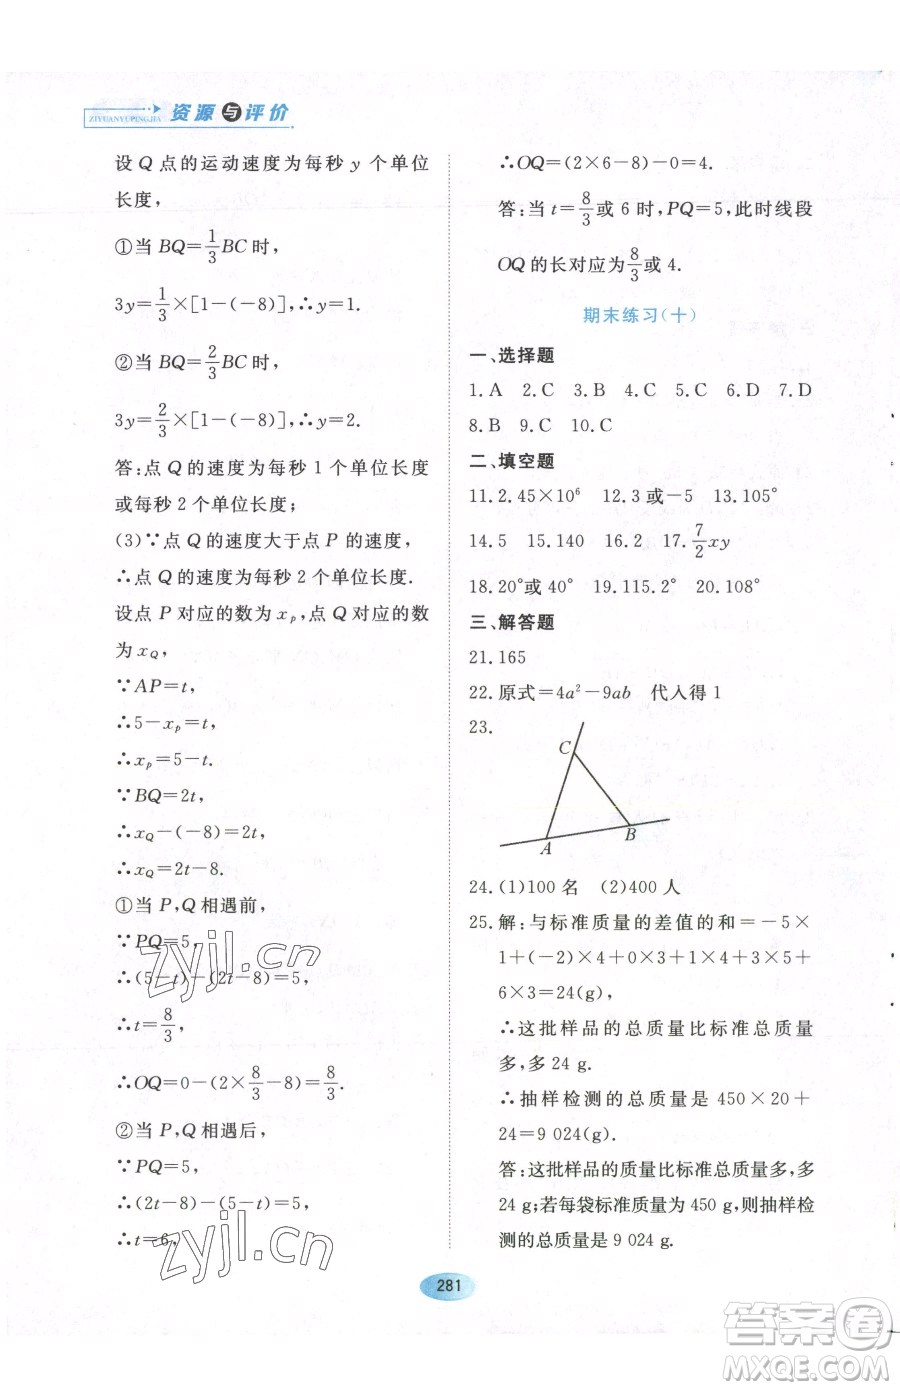 资源与评价
ZIYUANYUPINGJIA
设 Q 点的运动速度为每秒 y 个单位
长度，
①当 BQ=1/3BC 时，
3y=1/3×[1-(-8)],∴y=1.
②当 BQ=2/3BC 时，
3y=2/3×[1-(-8)],∴y=2.
答:点 Q 的速度为每秒 1 个单位长度
或每秒 2 个单位长度；
(3)∵点 Q 的速度大于点 P 的速度，
∴点 Q 的速度为每秒 2 个单位长度.
设点 P 对应的数为 xₚ,点 Q 对应的数
为 x_Q，
∵AP=t，
∴5-xₚ=t，
∴xₚ=5-t.
∵BQ=2t，
∴x_Q-(-8)=2t，
∴x_Q=2t-8.
①当 P,Q 相遇前，
∵PQ=5，
∴(5-t)-(2t-8)=5，
∴t=8/3，
∴OQ=0-(2×8/3-8)=8/3.
②当 P,Q 相遇后，
∵PQ=5，
∴(2t-8)-(5-t)=5，
∴t=6，
∴OQ=(2×6-8)-0=4.
答:当 t=8/3或 6 时,PQ=5,此时线段
OQ 的长对应为8/3或 4.
期末练习(十)
一、选择题
1.A 2.C 3.B 4.C 5.C 6.D 7.D
8.B 9.C 10.C
二、填空题
11.2.45×10⁶ 12.3 或-5 13.105°
14.5 15.140 16.2 17.7/2xy
18.20°或 40° 19.115.2° 20.108°
三、解答题
21.165
22.原式=4a²-9ab 代入得 1
23.
C
A
B
24.(1)100 名 (2)400 人
25.解:与标准质量的差值的和=-5×
1+(-2)×4+0×3+1×4+3×5+
6×3=24(g)，
∴这批样品的总质量比标准总质量
多,多 24 g.
∴抽样检测的总质量是 450×20+
24=9 024(g).
答:这批样品的质量比标准总质量多,多
24 g;若每袋标准质量为 450 g,则抽样检
测的总质量是 9 024 g.
281
zyjl.cn
zyjl.cn
答案圈
MXQE.COM